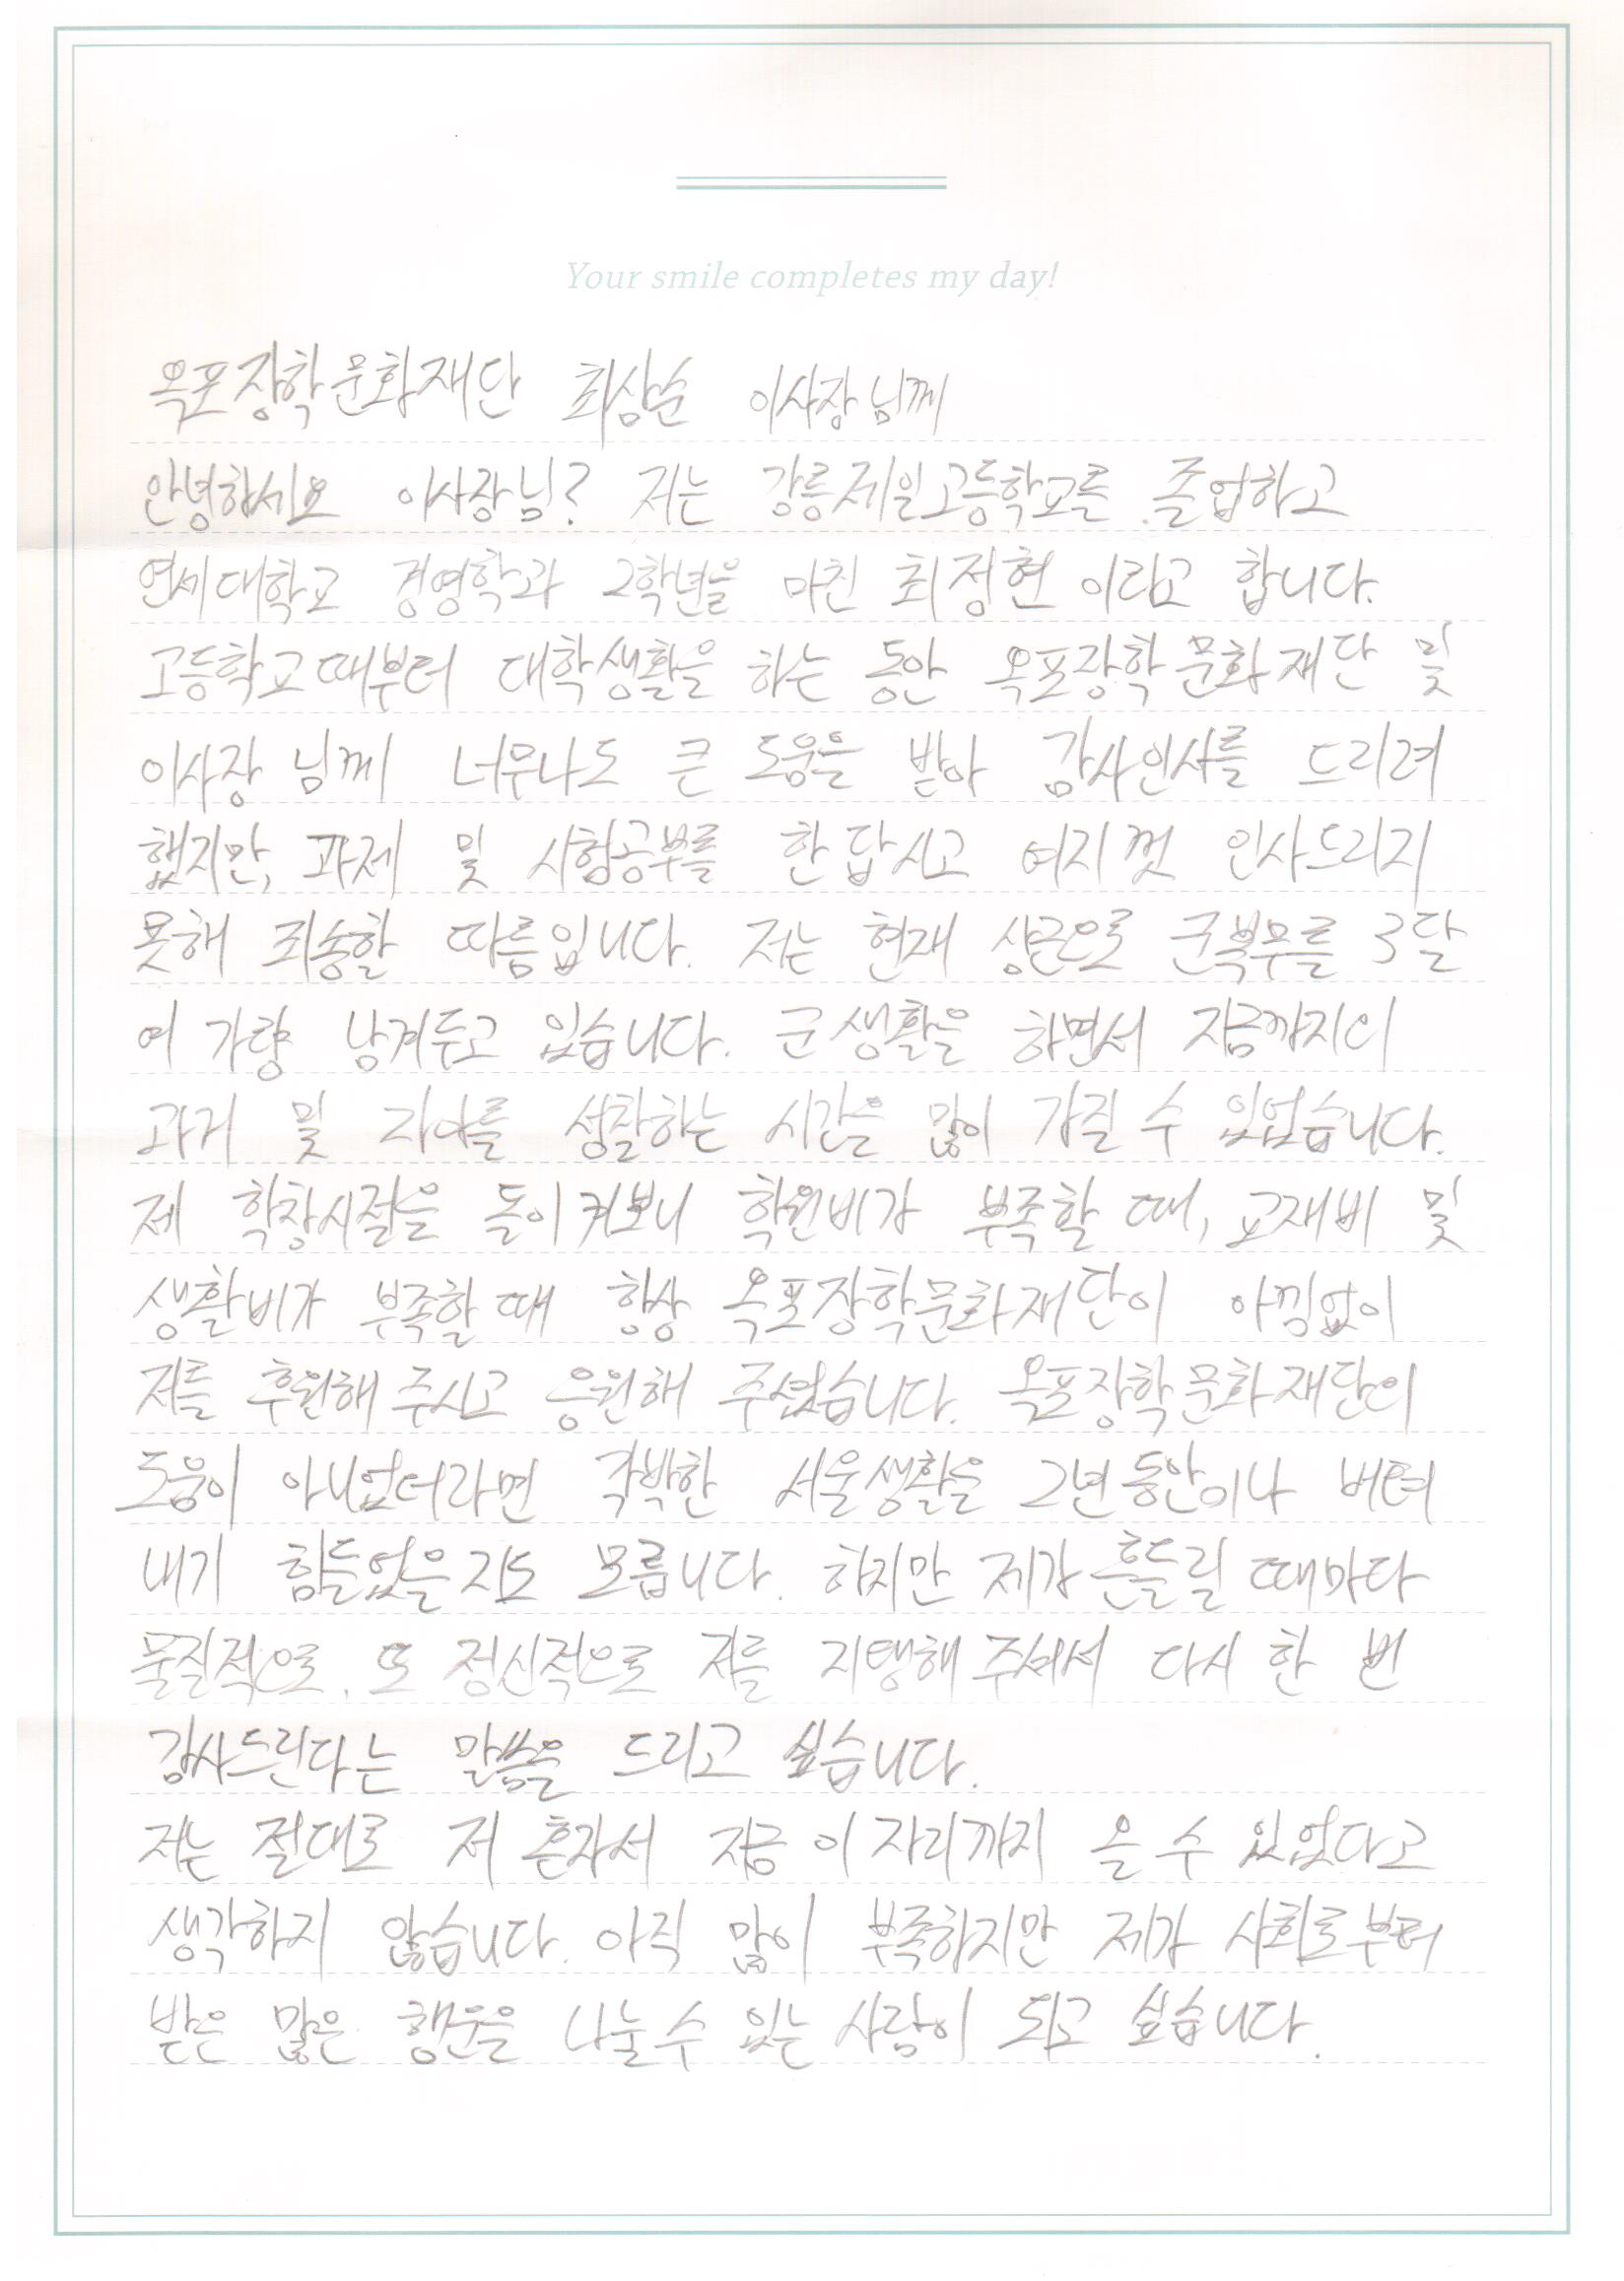 Your smile completes my day!
옥포장학문화재단 최삼순 이사장님께
안녕하세요 이사장님? 저는 강릉제일고등학교를 졸업하고
연세대학교 경영학과 2학년을 마친 최정현 이라고 합니다.
고등학교때부터 대학생활을 하는 동안 옥포장학문화재단 및
이사장님께 너무나도 큰 도움을 받아 감사인사를 드리려
했지만, 과제 및 시험공부를 한답시고 여지껏 인사드리지
못해 죄송할 따름입니다. 저는 현재 상근으로 군복무를 3달
여 가량 남겨두고 있습니다. 군생활을 하면서 지금까지의
과거 및 자아를 성찰하는 시간을 많이 가질 수 있었습니다.
제 학창시절을 돌이켜보니 학원비가 부족할 때, 교재비 및
생활비가 부족할 때 항상 옥포장학문화재단이 아낌없이
저를 후원해 주시고 응원해 주셨습니다. 옥포장학문화재단의
도움이 아니었더라면 각박한 서울생활을 2년동안이나 버텨
내기 힘들었을지도 모릅니다. 하지만 제가 흔들릴 때마다
물질적으로, 또 정신적으로 저를 지탱해 주셔서 다시 한 번
감사드린다는 말씀을 드리고 싶습니다.
저는 절대로 저 혼자서 지금 이 자리까지 올 수 있었다고
생각하지 않습니다. 아직 많이 부족하지만 제가 사회로부터
받은 많은 행운을 나눌 수 있는 사람이 되고 싶습니다.